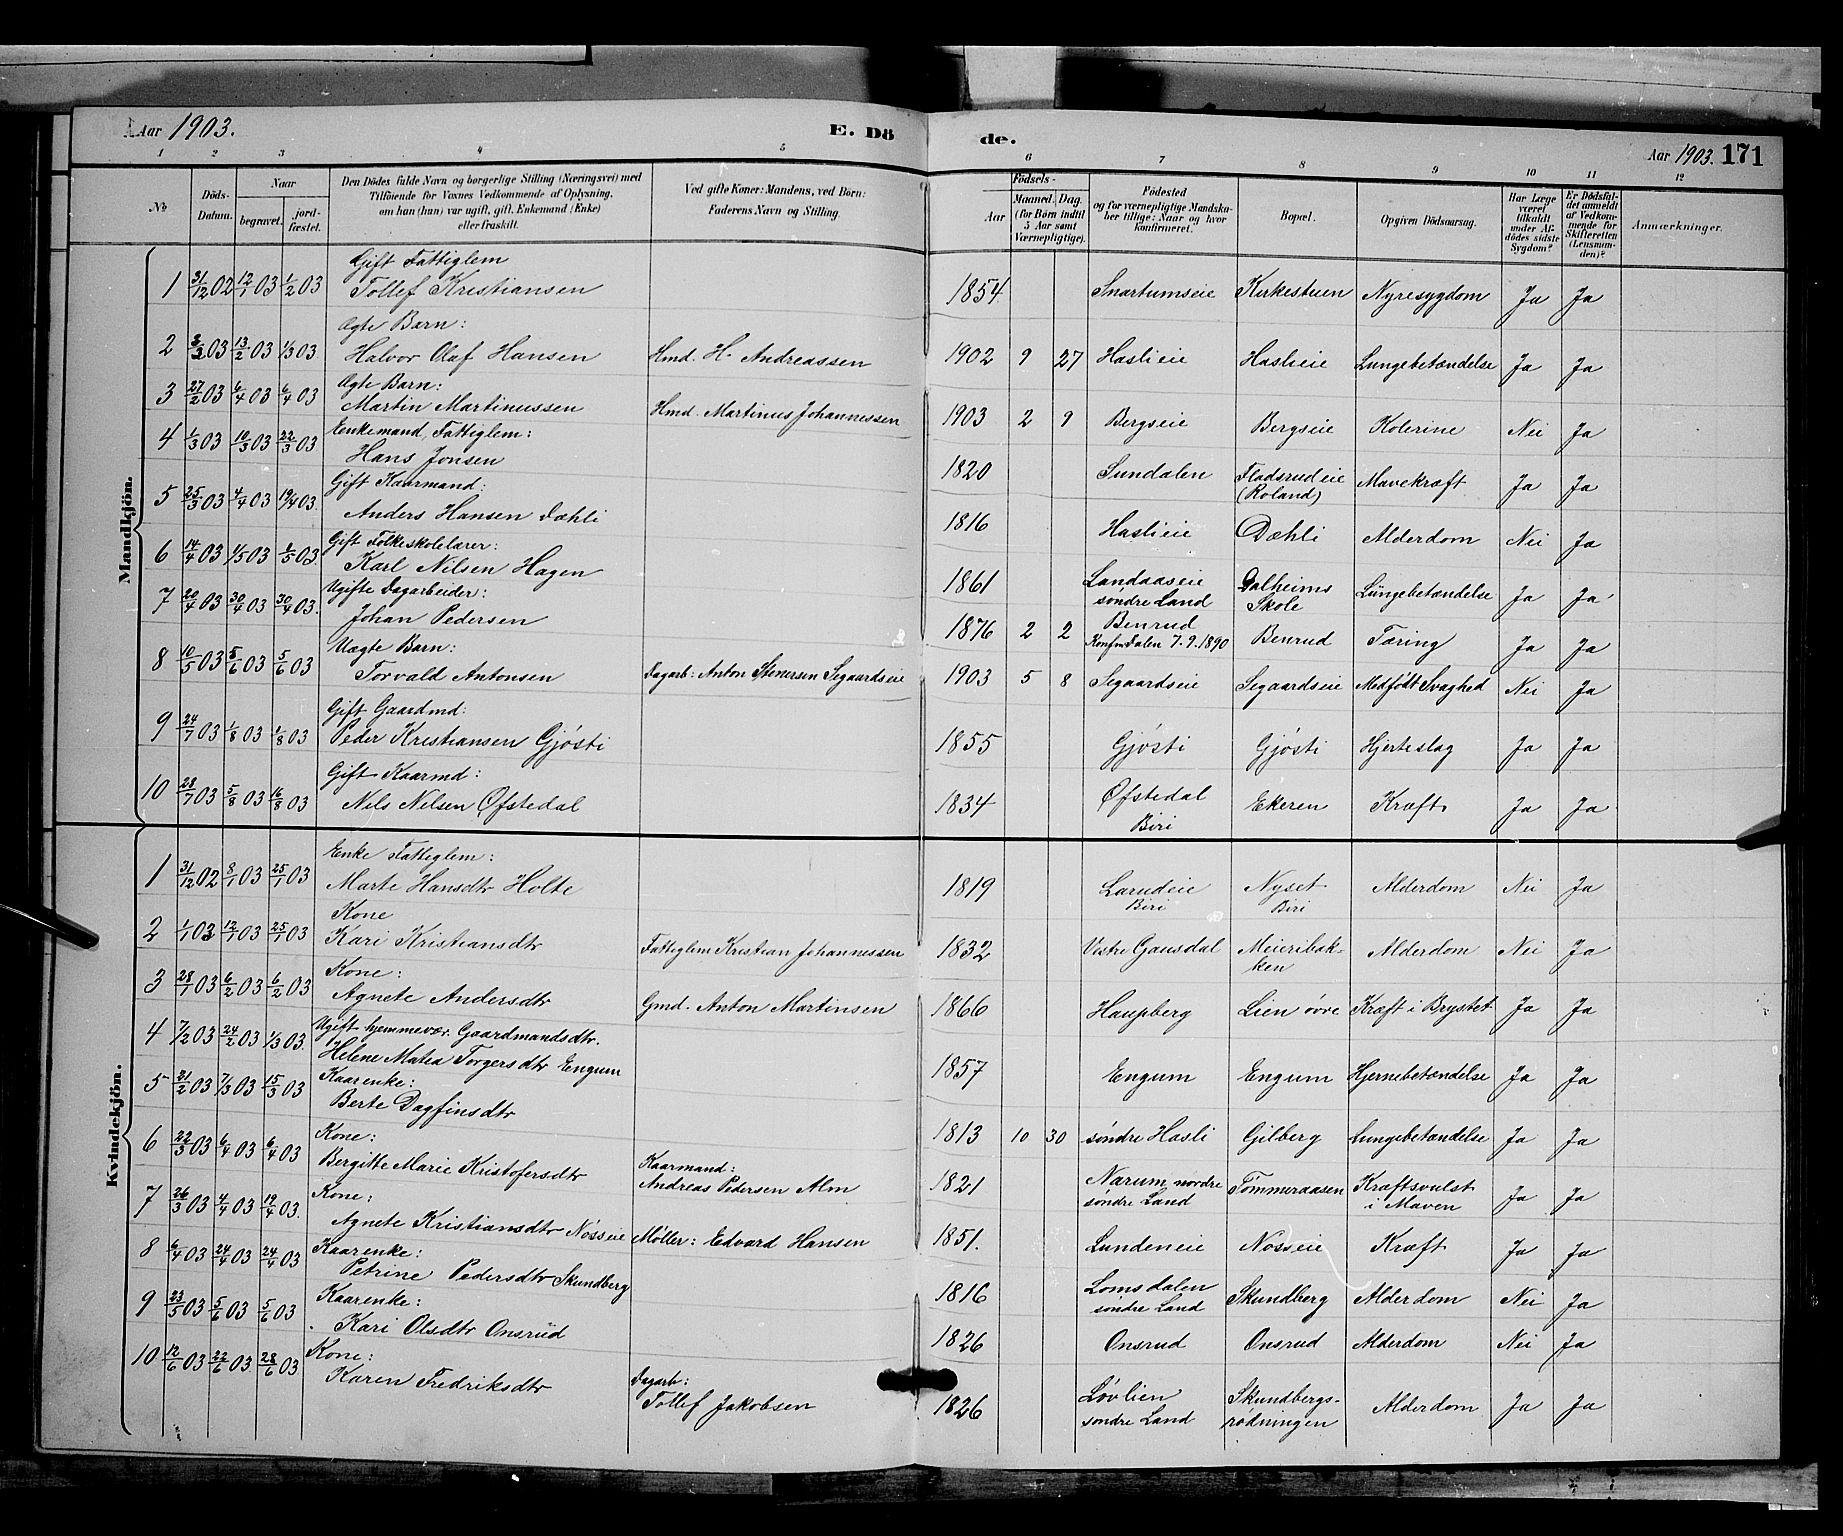 Aar 1903.
E. Dö
de.
Aar 1903. 171
1 2 3 4 5 6 7 8 9 10 11 12
No
Döds-Datum.
Naar
begravet.
jord-fæstet.
Den Dödes fulde Navn og borgerlige Stilling (Næringsvei) med
Tilföiende for Voxnes Vedkommende af Oplysning,
om han (hun) var ugift, gift, Enkemand (Enke)
eller fraskilt.
Ved gifte Koner: Mandens, ved Börn:
Faderens Navn og Stilling.
Födsels-
Aar
Maaned. Dag.
(for Börn indtil
5 Aar samt
Værnepligtige).
Födested
og for værnepligtige Mandska-
ber tillige: Naar og hvor
konfirmeret.
Bopæl.
Opgiven Dödsaarsag.
Har Læge
været
tilkaldt
under Af-
dödes sidste
Sygdom?
Er Dödsfal-
det anmeldt
af Vedkom-
mende for
Skifteretten
(Lensman-
den)?
Anmærkninger.
Mandkjön.
1 31/12 02 12/1 03 1/2 03 Gift Fattiglem
Tollef Kristiansen 1854 Snartumseie Kirkestuen Nyresygdom Ja Ja
2 3/2 03 13/2 03 1/3 03 Ægte Barn:
Halvor Olaf Hansen Hmd. H. Andreassen 1902 9 27 Haslieie Haslieie Lungebetændelse Ja Ja
3 27/2 03 6/4 03 6/4 03 Ægte Barn:
Martin Martinussen Hmd. Martinus Johannessen 1903 2 9 Bergseie Bergseie Kolerine Nei Ja
4 1/3 03 10/3 03 22/3 03 Enkemand, Fattiglem:
Hans Jonsen 1820 Sundalen Fladsrudeie
(Roland) Mavekræft Ja Ja
5 25/3 03 4/4 03 19/4 03 Gift Kaarmand:
Anders Hansen Dæhli 1816 Haslieie Dæhli Alderdom Nei Ja
6 14/4 03 1/5 03 1/5 03 Gift Folkeskolelærer:
Karl Nilsen Hagen 1861 Landaaseie
søndre Land Dalheims
Skole Lungebetændelse Ja Ja
7 20/4 03 30/4 03 30/4 03. Ugifte Dagarbeider:
Johan Pedersen 1876 2 2 Benrud
Konf. Dalen 7.9.1890 Benrud Tæring Ja Ja
8 10/5 03 5/6 03 5/6 03 Uægte Barn:
Torvald Antonsen Dagarb: Anton Stenersen Segaardseie 1903 5 8 Segaardseie Segaardseie Medfødt Svaghed Nei Ja
9 24/7 03 1/8 03 1/8 03 Gift Gaardmd:
Peder Kristiansen Gjøsti 1855 Gjøsti Gjøsti Hjerteslag Ja Ja
10 28/7 03 5/8 03 16/8 03 Gift Kaarmd:
Nils Nilsen Øfstedal 1834 Øfstedal
Biri Ekeren Kræft Ja Ja
Kvindekjön.
1 31/12 02 8/1 03 25/1 03 Enke Fattiglem:
Marte Hansdtr Holte 1819 Larudeie
Biri Nyset
Biri Alderdom Nei Ja
2 1/1 03 12/1 03 25/1 03 Kone
Kari Kristiansdtr Fattiglem Kristian Johannessen 1832 Vestre Gausdal Meieribak-
ken Alderdom Nei Ja
3 28/1 03 6/2 03 6/2 03 Kone:
Agnete Andersdtr Gmd. Anton Martinsen 1866 Haupberg Lien øvre Kræft i Brystet Ja Ja
4 7/2 03 24/2 03 1/3 03. Ugift hjemmevær. Gaardmandsdtr.
Helene Matea Torgersdtr Engum 1857 Engum Engum Hjernebetændelse Ja Ja
5 21/2 03 7/3 03 15/3 03 Kaarenke:
Berte Dagfinsdtr 1813 10 30 søndre Hasli Gilberg Lungebetændelse Ja Ja
6 22/3 03 6/4 03 6/4 03 Kone:
Bergitte Marie Kristofersdtr Kaarmand:
Andreas Pedersen Alm 1821 Narum nordre
søndre Land Tømmeraasen Kræftsvulst
i Maven Ja Ja
7 26/3 03 4/4 03 19/4 03. Kone:
Agnete Kristiansdtr Nøsseie Møller: Edvard Hansen 1851. Lundeneie Nosseie Kræft Ja Ja
8 6/4 03 24/4 03 24/4 03 Kaarenke:
Petrine Pedersdtr Skundberg 1816 Lomsdalen
søndre Land Skundberg Alderdom Nei Ja
9 23/5 03 5/6 03 5/6 03 Kaarenke:
Kari Olsdtr Onsrud 1826 Onsrud Onsrud Alderdom Nei Ja
10 12/6 03 22/6 03 28/6 03 Kone:
Karen Fredriksdtr Dagarb:
Tollef Jakobsen 1826 Løvlien
søndre Land Skundbergs-
rødningen Alderdom Ja Ja